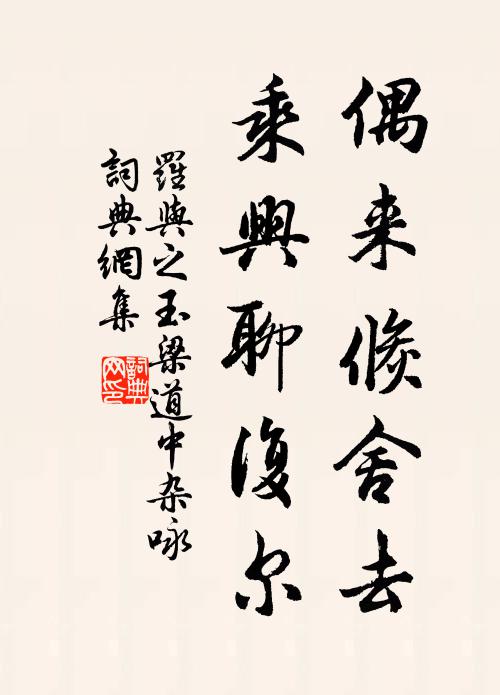 偶来倏舍去
乘興聊復尔
羅與之玉梁道中杂咏
詞典網集
詞典网印